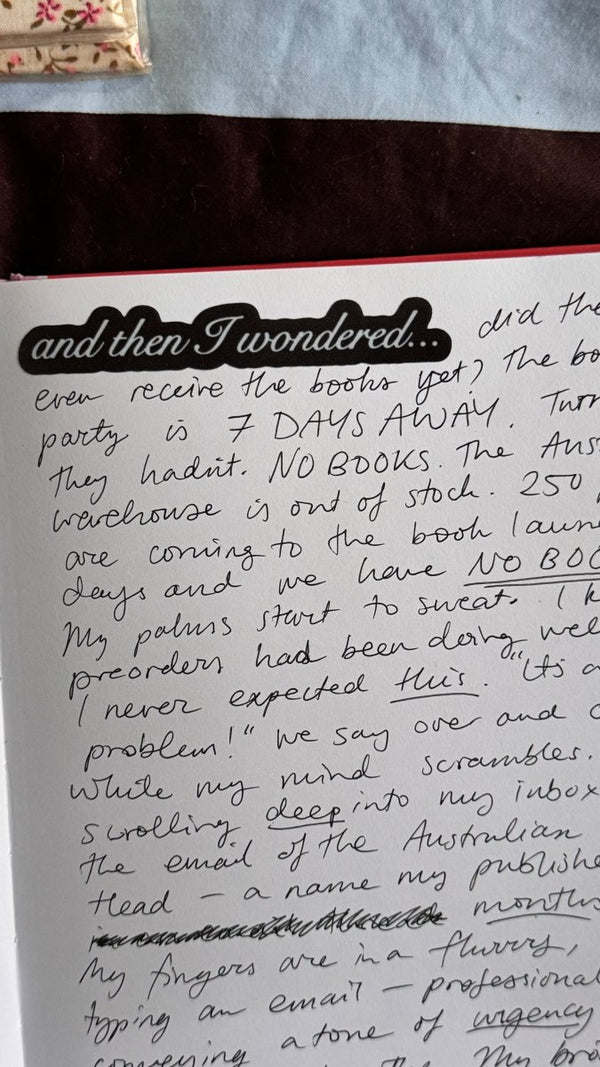 and then I wondered... did the
even receive the books yet? The bo
party is 7 DAYS AWAY. Turn
they hadn't. NO BOOKS. The Aus
warehouse is out of stock. 250
are coming to the book laun
days and we have NO BOO
My palms start to sweat. I k
preorders had been doing wel
I never expected this. "Its a
problem!" we say over and o
while my mind scrambles.
scrolling deep into my inbox
the email of the Australian
Head – a name my publishe
months
My fingers are in a flurry,
typing an email – professional
conveying a tone of urgency
My bra